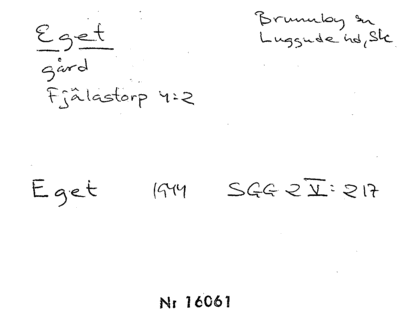 Eget
gård
Fjälastorp 4:2
Brunnby sn
Luggude hd, Sk
Eget 1944 SGG 2 V: 217
Nr 16061